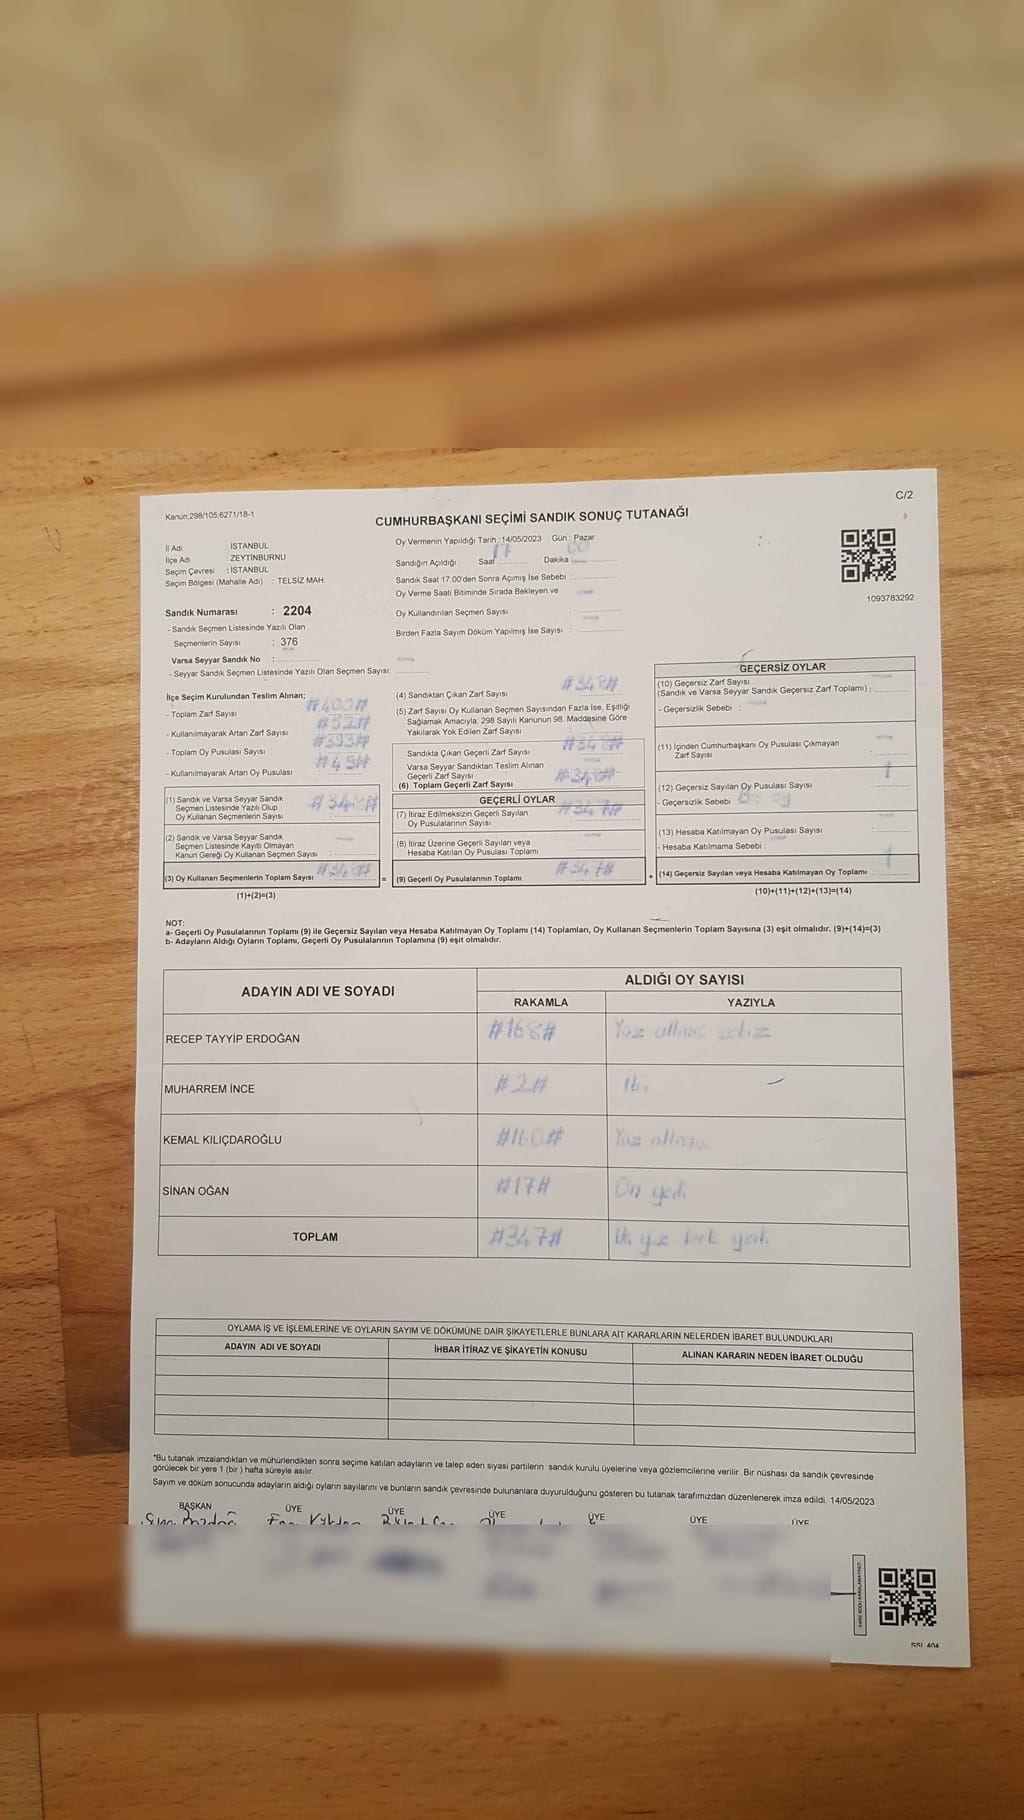 C/2
Kanun,298/105,6271/18-1
CUMHURBAŞKANI SEÇİMİ SANDIK SONUÇ TUTANAĞI
İl Adı : İSTANBUL
İlçe Adı : ZEYTİNBURNU
Seçim Çevresi : İSTANBUL
Seçim Bölgesi (Mahalle Adı) : TELSİZ MAH.
Sandık Numarası : 2204
- Sandık Seçmen Listesinde Yazılı Olan
Seçmenlerin Sayısı : 376
Varsa Seyyar Sandık No :
- Seyyar Sandık Seçmen Listesinde Yazılı Olan Seçmen Sayısı:
Oy Vermenin Yapıldığı Tarih : 14/05/2023 Gün : Pazar
Sandığın Açıldığı Saat 17 Dakika 00
Sandık Saat 17:00'den Sonra Açımış İse Sebebi :
Oy Verme Saati Bitiminde Sırada Bekleyen ve
Oy Kullandırılan Seçmen Sayısı :
Birden Fazla Sayım Döküm Yapılmış İse Sayısı :
1093783292
İlçe Seçim Kurulundan Teslim Alınan;
- Toplam Zarf Sayısı #400#
- Kullanılmayarak Artan Zarf Sayısı
- Toplam Oy Pusulası Sayısı #393#
- Kullanılmayarak Artan Oy Pusulası #45#
(1) Sandık ve Varsa Seyyar Sandık
Seçmen Listesinde Yazılı Olup
Oy Kullanan Seçmenlerin Sayısı #348#
(2) Sandık ve Varsa Seyyar Sandık
Seçmen Listesinde Kayıtlı Olmayan
Kanun Gereği Oy Kullanan Seçmen Sayısı :
(3) Oy Kullanan Seçmenlerin Toplam Sayısı #348#
(1)+(2)=(3)
(4) Sandıktan Çıkan Zarf Sayısı #348#
(5) Zarf Sayısı Oy Kullanan Seçmen Sayısından Fazla İse, Eşitliği
Sağlamak Amacıyla; 298 Sayılı Kanunun 98. Maddesine Göre
Yakılarak Yok Edilen Zarf Sayısı
Sandıkta Çıkan Geçerli Zarf Sayısı #348#
Varsa Seyyar Sandıktan Teslim Alınan
Geçerli Zarf Sayısı
(6) Toplam Geçerli Zarf Sayısı #348#
GEÇERLİ OYLAR
(7) İtiraz Edilmeksizin Geçerli Sayılan
Oy Pusulalarının Sayısı #347#
(8) İtiraz Üzerine Geçerli Sayılan veya
Hesaba Katılan Oy Pusulası Toplamı
(9) Geçerli Oy Pusulalarının Toplamı #347#
GEÇERSİZ OYLAR
(10) Geçersiz Zarf Sayısı
(Sandık ve Varsa Seyyar Sandık Geçersiz Zarf Toplamı) :
- Geçersizlik Sebebi :
(11) İçinden Cumhurbaşkanı Oy Pusulası Çıkmayan
Zarf Sayısı :
(12) Geçersiz Sayılan Oy Pusulası Sayısı : 1
- Geçersizlik Sebebi
(13) Hesaba Katılmayan Oy Pusulası Sayısı :
- Hesaba Katılmama Sebebi :
(14) Geçersiz Sayılan veya Hesaba Katılmayan Oy Toplamı : 1
(10)+(11)+(12)+(13)=(14)
NOT:
a- Geçerli Oy Pusulalarının Toplamı (9) ile Geçersiz Sayılan veya Hesaba Katılmayan Oy Toplamı (14) Toplamları, Oy Kullanan Seçmenlerin Toplam Sayısına (3) eşit olmalıdır. (9)+(14)=(3)
b- Adayların Aldığı Oyların Toplamı, Geçerli Oy Pusulalarının Toplamına (9) eşit olmalıdır.
ADAYIN ADI VE SOYADI
ALDIĞI OY SAYISI
RAKAMLA YAZIYLA
RECEP TAYYİP ERDOĞAN #168# Yüz altmış sekiz
MUHARREM İNCE #2# İki
KEMAL KILIÇDAROĞLU #160# Yüz altmış
SİNAN OĞAN #17# On yedi
TOPLAM #347# Üç yüz kırk yedi
OYLAMA İŞ VE İŞLEMLERİNE VE OYLARIN SAYIM VE DÖKÜMÜNE DAİR ŞİKAYETLERLE BUNLARA AİT KARARLARIN NELERDEN İBARET BULUNDUKLARI
ADAYIN ADI VE SOYADI İHBAR İTİRAZ VE ŞİKAYETİN KONUSU ALINAN KARARIN NEDEN İBARET OLDUĞU
*Bu tutanak imzalandıktan ve mühürlendikten sonra seçime katılan adayların ve talep eden siyasi partilerin sandık kurulu üyelerine veya gözlemcilerine verilir. Bir nüshası da sandık çevresinde
görülecek bir yere 1 (bir ) hafta süreyle asılır.
Sayım ve döküm sonucunda adayların aldığı oyların sayılarını ve bunların sandık çevresinde bulunanlara duyurulduğunu gösteren bu tutanak tarafımızdan düzenlenerek imza edildi. 14/05/2023
BAŞKAN ÜYE ÜYE ÜYE ÜYE ÜYE ÜYE